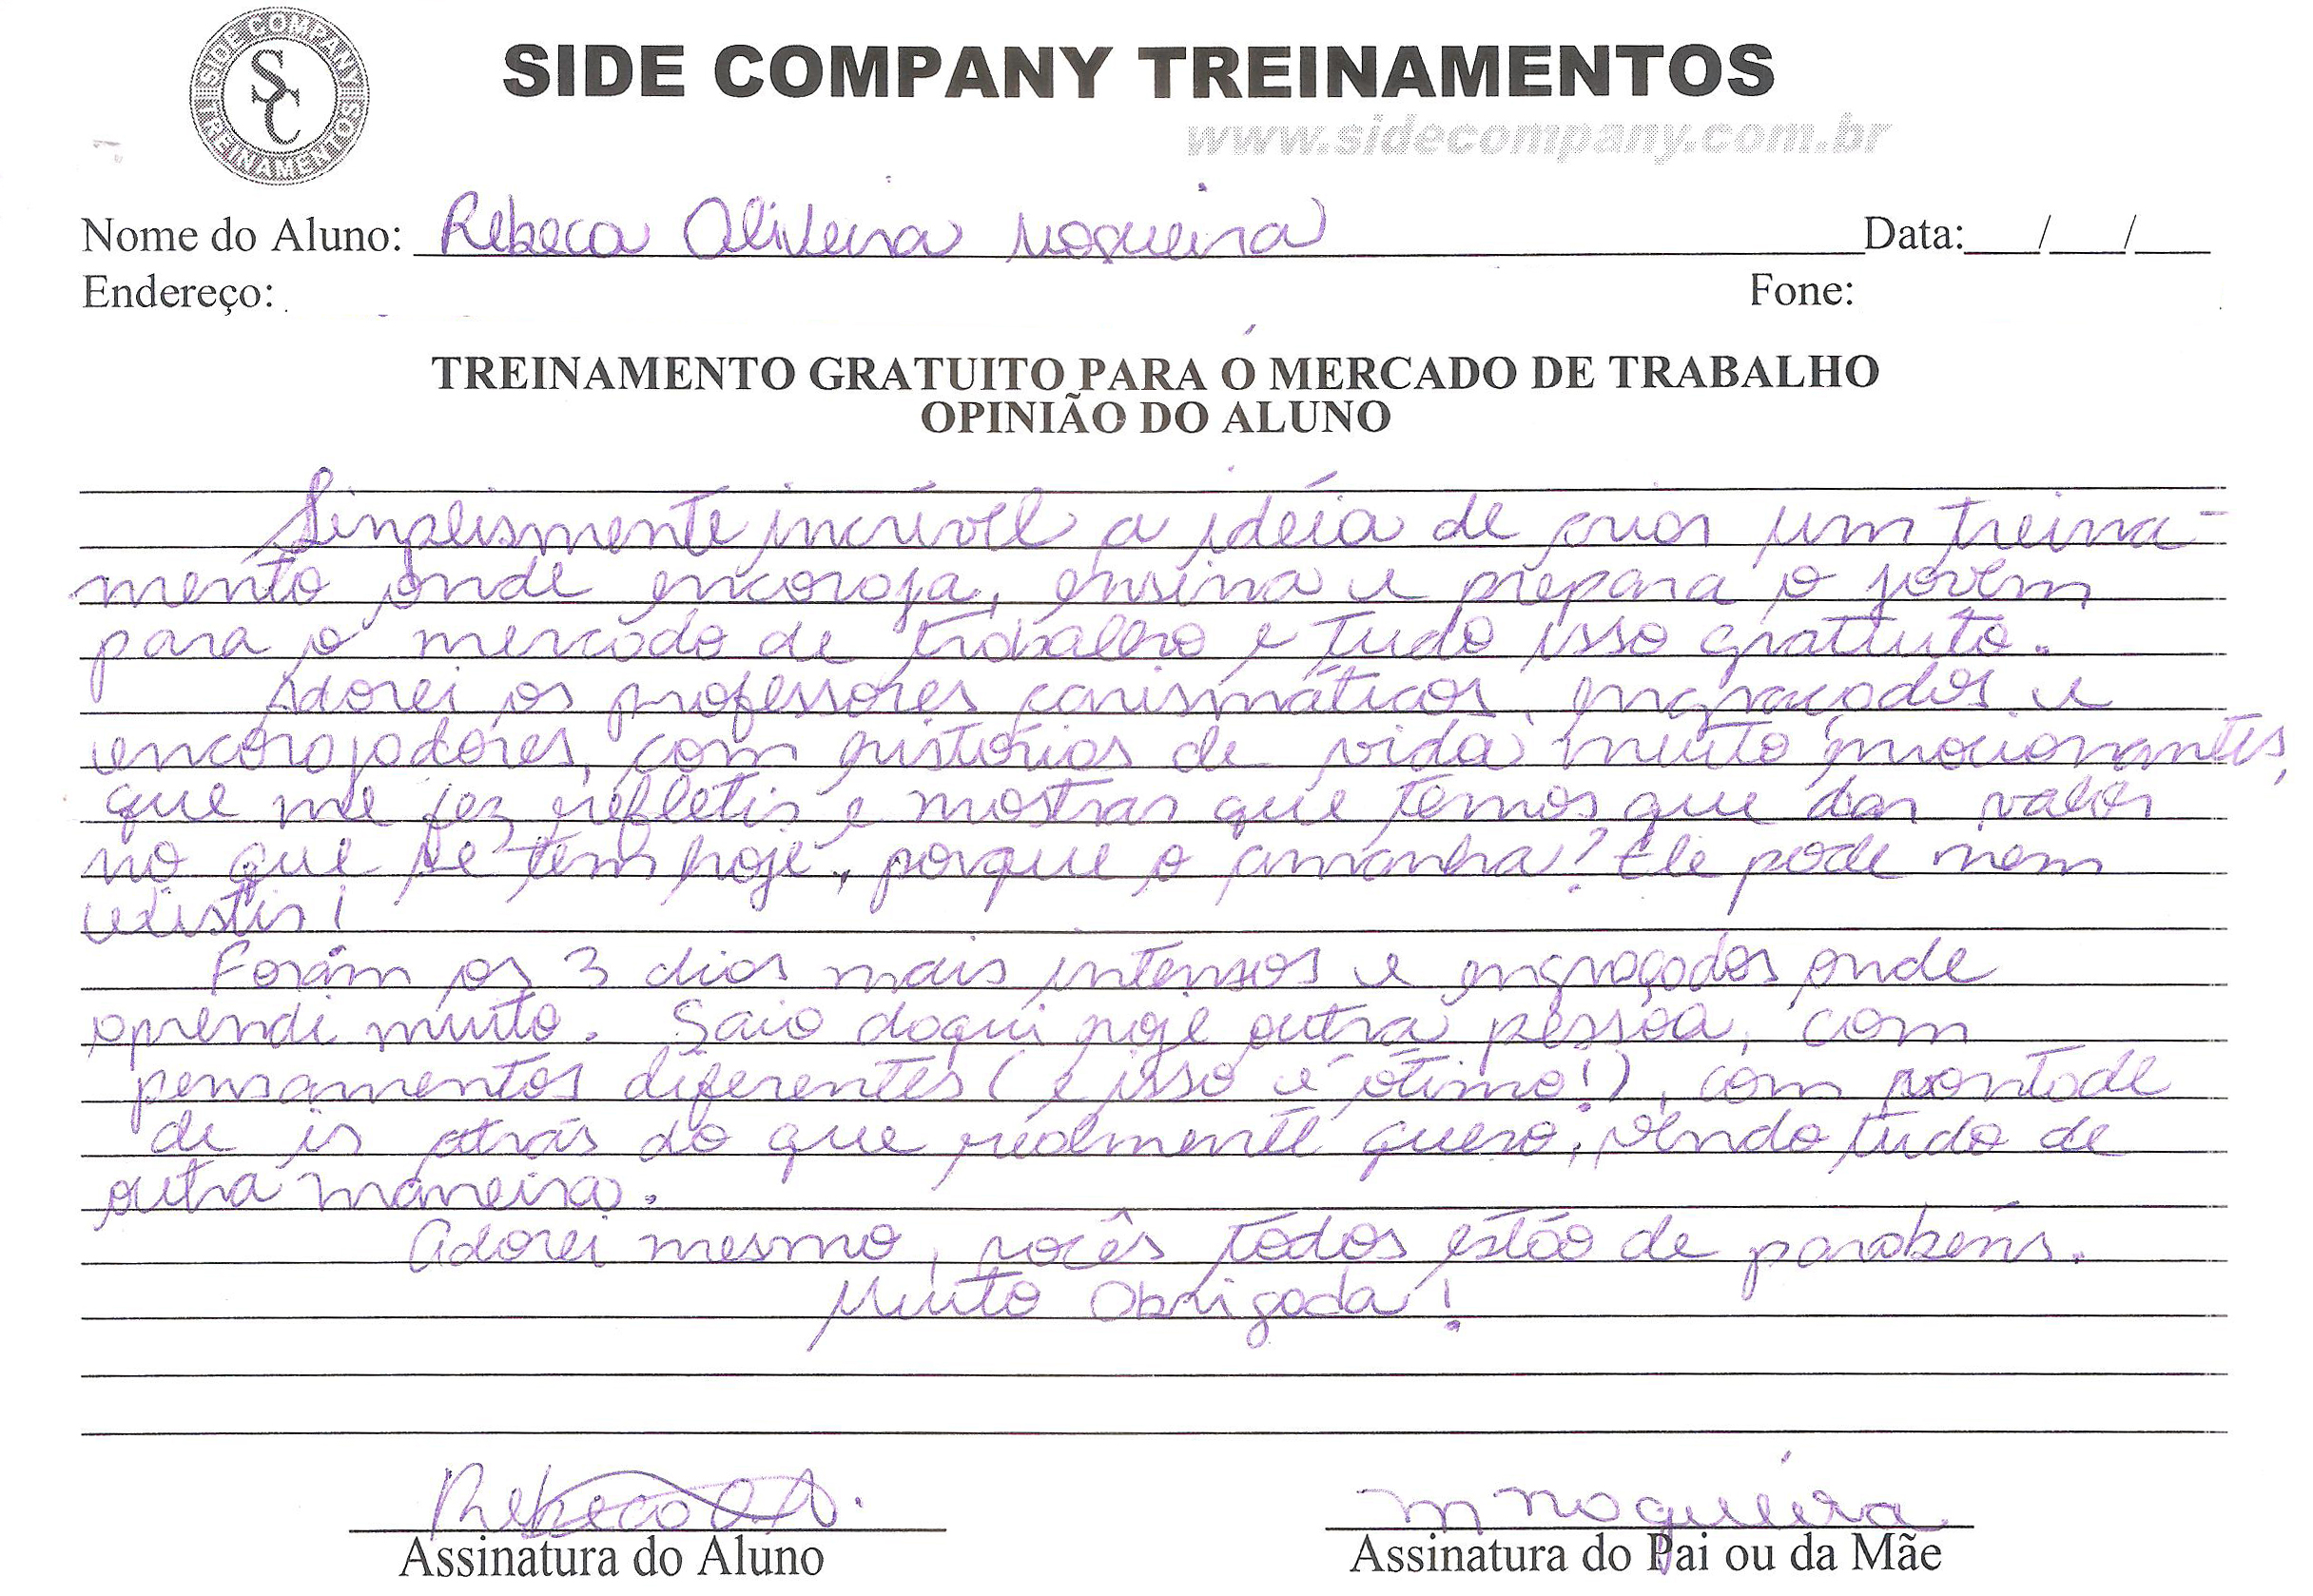 SIDE COMPANY TREINAMENTOS
SC
SIDE COMPANY TREINAMENTOS
www.sidecompany.com.br
Nome do Aluno: Rebeca Oliveira Nogueira Data: / /
Endereço: Fone:
TREINAMENTO GRATUITO PARA O MERCADO DE TRABALHO
OPINIÃO DO ALUNO
Simplismente incrível a idéia de criar um treina-
mento onde encoroja, ensina e prepara o jovem
para o mercado de trabalho e tudo isso gratuito.
Adorei os professores carismáticos, engraçados e
encorajadores, com histórias de vida muito emocionantes,
que me fez refletir e mostrar que temos que dar valor
no que se tem hoje, porque o amanha? Ele pode nem
existir!
Foram os 3 dias mais intensos e engraçados onde
aprendi muito. Saio daqui hoje outra pessoa, com
pensamentos diferentes (e isso é ótimo!), com vontade
de ir atrás do que realmente quero, vendo tudo de
outra maneira.
Adorei mesmo, vocês todos estão de parabéns.
Muito Obrigada!
Rebeca O.N.
m nogueira
Assinatura do Aluno
Assinatura do Pai ou da Mãe